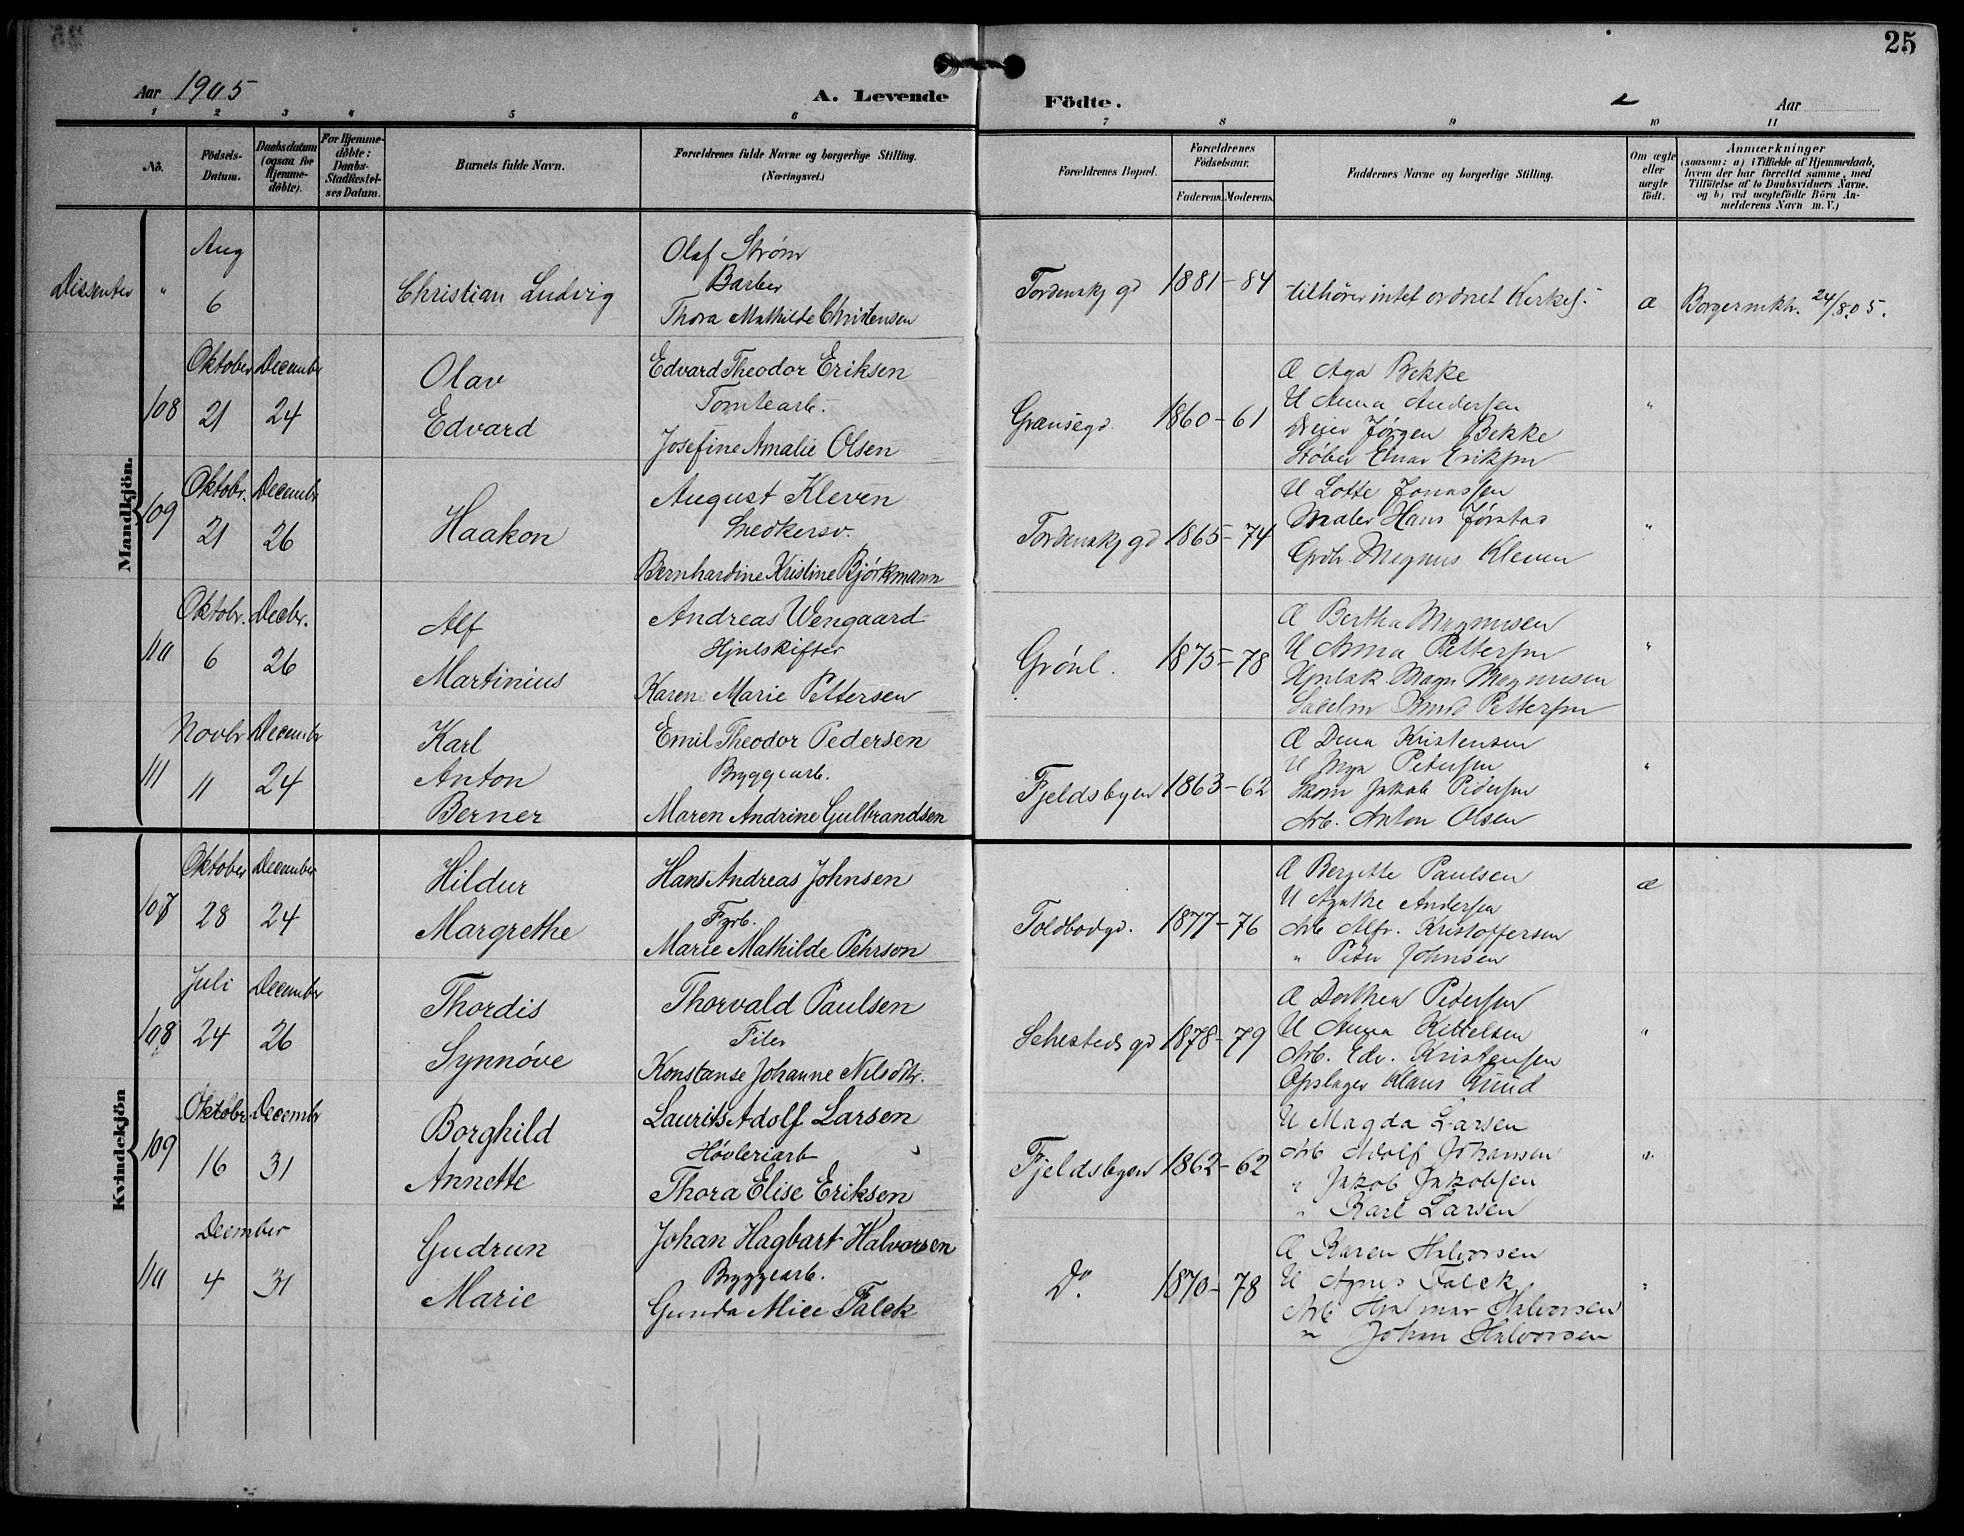 25
Aar 1905
A. Levende
Födte.
Aar
1 2 3 4 5 6 7 8 9 10 11
No.
Födsels-
Datum.
Daabsdatum
(ogsaa for
Hjemme-
döbte).
For Hjemme-
döbte:
Daabs-
Stadfæstel-
ses Datum.
Barnets fulde Navn.
Forældrenes fulde Navne og borgerlige Stilling.
(Næringsvei.)
Forældrenes Bopæl.
Forældrenes
Födselsaar.
Faderens. Moderens.
Faddernes Navne og borgerlige Stilling.
Om ægte
eller
uægte
födt.
Anmærkninger
(saasom: a) i Tilfælde af Hjemmedaab,
hvem der har forrettet samme, med
Tilföielse af to Daabsvidners Navne.
og b) ved uægtefödte Börn An-
melderens Navn m. V.)
Mandkjön.
Dissenter "
Aug
6
Christian Ludvig
Olaf Strøm
Barber
Thora Mathilde Christensen
Tordenskj gd
1881 - 84
tilhører intet ordnet Kirkes.
æ
24/8.05.
108
Oktober December
21 24
Olav
Edvard
Edvard Theodor Eriksen
Tomtearb.
Josefine Amalie Olsen
Grænsegd.
1860 - 61
Æ Aga Bekke
U Anna Andersen
Jørgen Bekke
Støber Einar Eriksen
"
109
Oktobr. Decembr
21 26
Haakon
August Kleven
Snedkersv.
Bernhardine Kristine Bjørkmann
Tordenskj gd
1865 - 74
U Lotte Jonassen
Maler Hans Jørstad
Magnus Kleven
"
110
Oktobr. Decbr.
6 26
Alf
Martinius
Andreas Wengaard
Hjulskifter
Karen Marie Pettersen
Grönl.
1875 - 78
Æ Bertha Magnusen
U Anna Pettersen
Hjulsk Magn Magnusen
Knud Pettersen
"
111
Novbr Decembr
11 24
Karl
Anton
Berner
Emil Theodor Pedersen
Bryggearb.
Maren Andrine Gulbrandsen
Fjeldsbyen
1863 - 62
Æ Dina Kristensen
U Pedersen
Skom Jakob Pedersen
Arb. Anton Olsen
"
Kvindekjön
107
Oktober December
28 24
Hildur
Margrethe
Hans Andreas Johnsen
Fyrb.
Marie Mathilde Pehrson
Toldbodgd.
1877 - 76
Æ Bergitte Paulsen
U Agathe Andersen
Arb Alfr. Kristoffersen
" Peder Johnsen
æ
108
Juli December
24 26
Thordis
Synnöve
Thorvald Paulsen
Filer
Konstanse Johanne Nilsdtr.
Sehesteds gd
1878 - 79
Æ Dorthea Pedersen
U Anna Kittelsen
Arb. Edv. Kristensen
Opslager Klaus Ruud
"
109
Oktobr. Decembr
16 31
Borghild
Annette
Laurits Adolf Larsen
Høvleriarb
Thora Elise Eriksen
Fjeldsbyen
1862 - 62
U Magda Larsen
Arb Adolf Johansen
" Jakob Jakobsen
" Karl Larsen
"
110
December
4 31
Gudrun
Marie
Johan Hagbart Halvorsen
Bryggearb.
Gunda Alice Falck
Do.
1870 - 78
Æ Karen Halvorsen
U Agnes Falck
Arb Hjalmar Halvorsen
" Johan Halvorsen
"